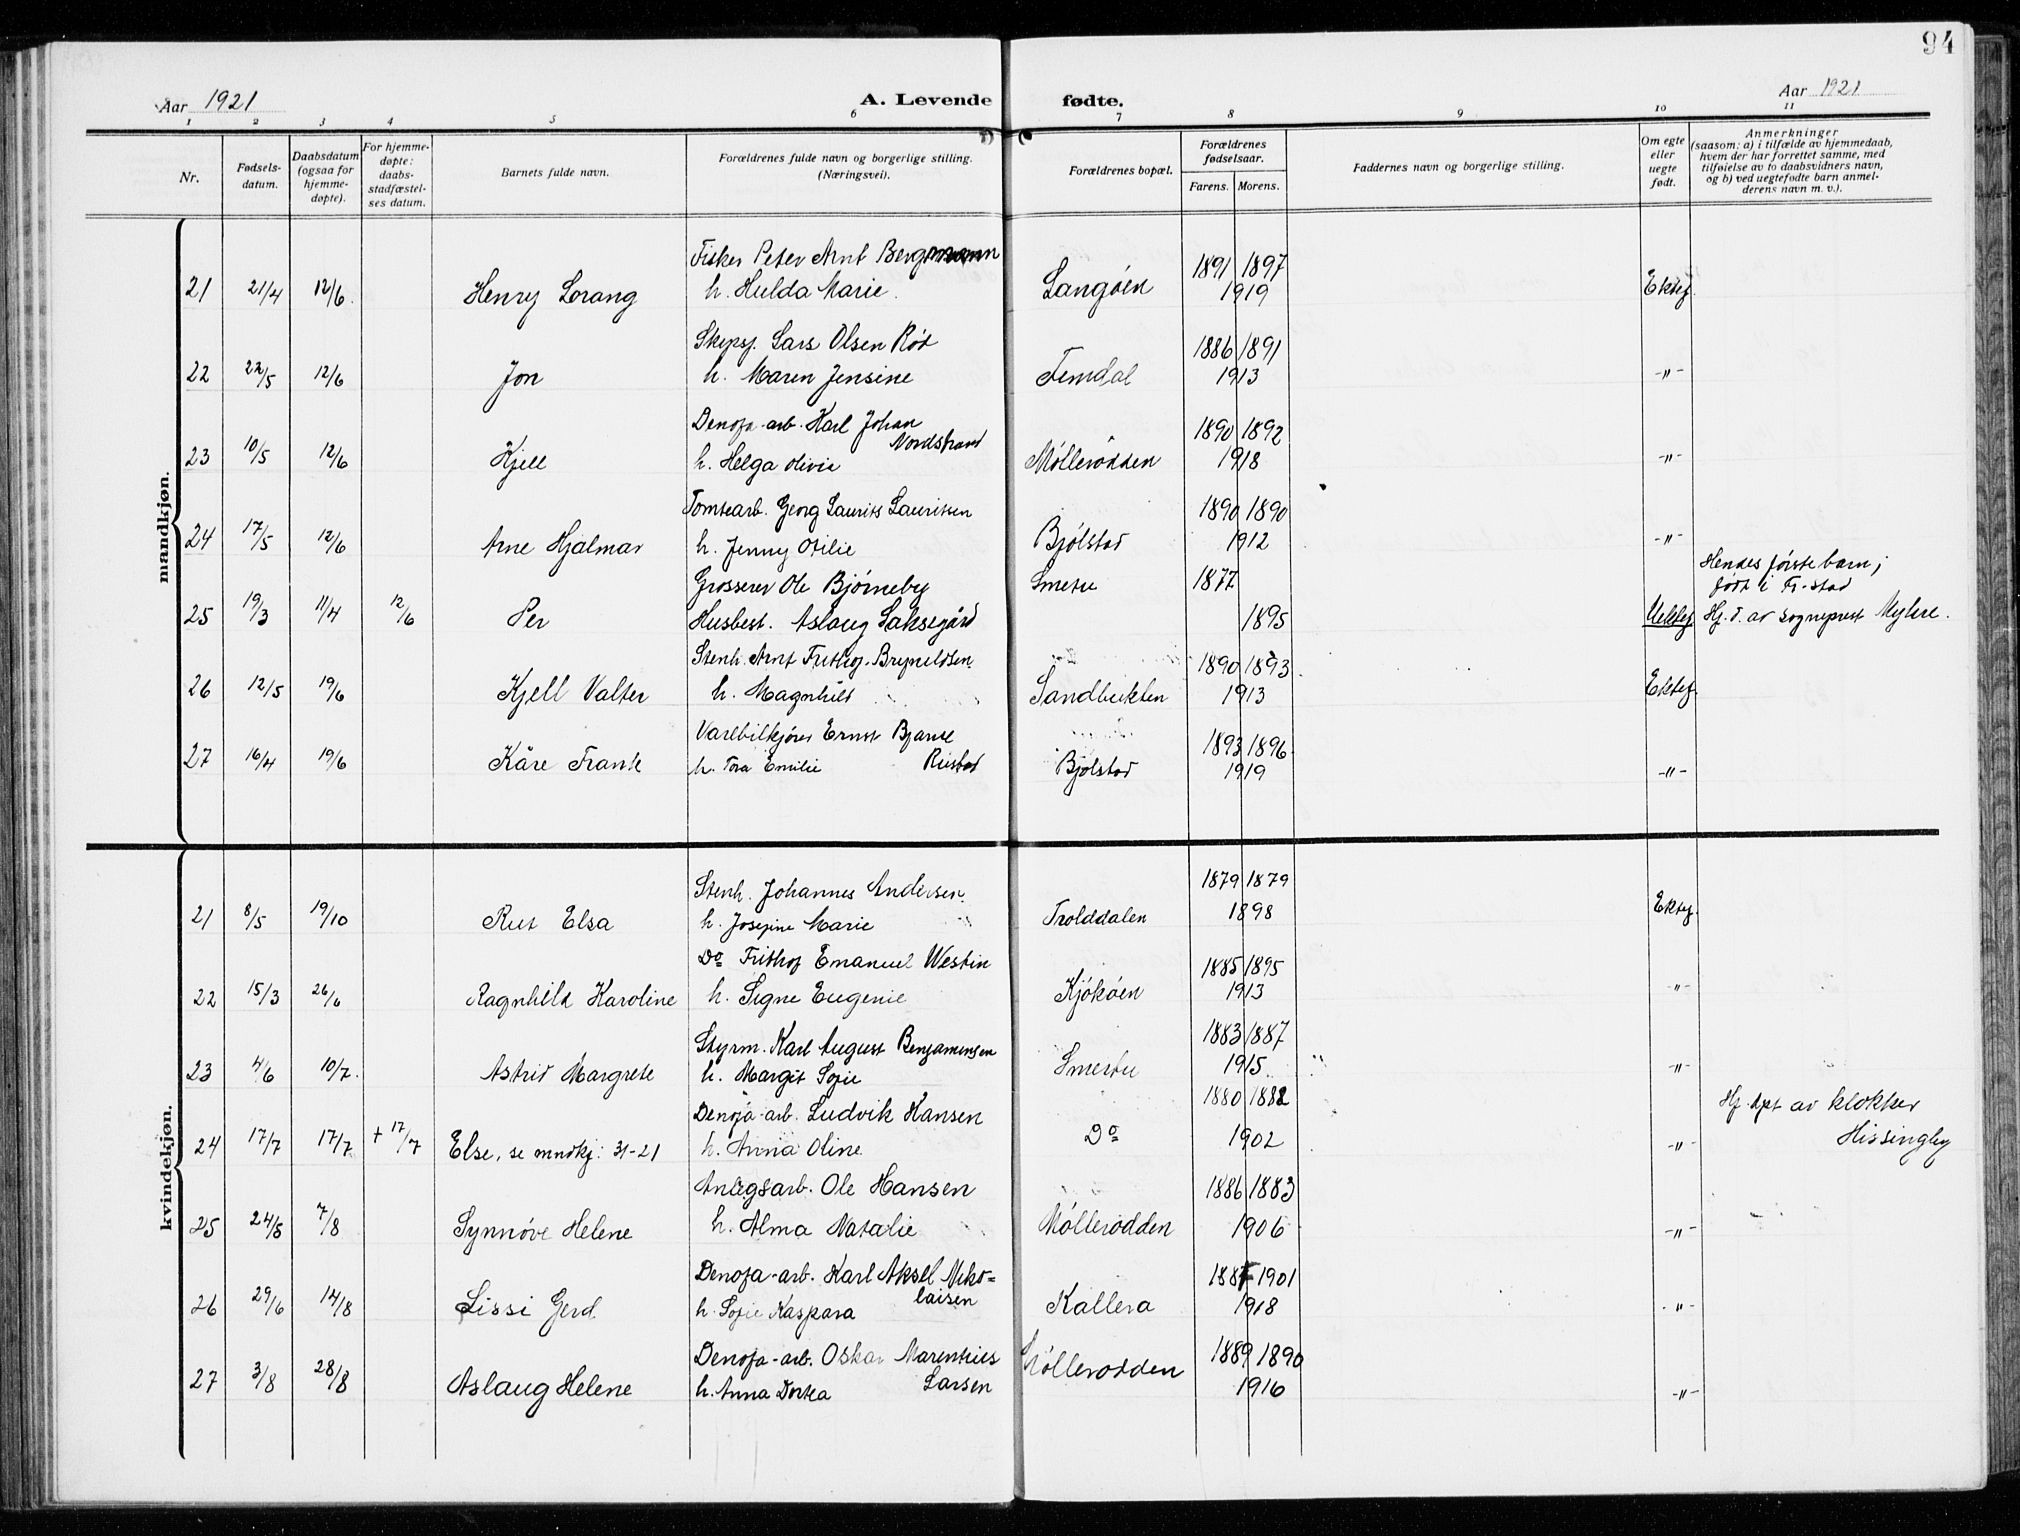 94
Aar 1921
A. Levende fødte.
Aar 1921
1 2 3 4 5 6 7 8 9 10 11
Nr.
Fødsels-
datum.
Daabsdatum
(ogsaa for
hjemme-
døpte).
For hjemme-
døpte:
daabs-
stadfæstel-
ses datum.
Barnets fulde navn.
Forældrenes fulde navn og borgerlige stilling.
(Næringsvei).
Forældrenes bopæl.
Forældrenes
fødselsaar.
Farens. Morens.
Faddernes navn og borgerlige stilling.
Om egte
eller
uegte
født.
Anmerkninger
(saasom: a) i tilfælde av hjemmedaab,
hvem der har forrettet samme, med
tilføielse av to daabsvidners navn,
og b) ved uegtefødte barn anmel-
derens navn m. v.).
mandkjøn.
Fisker Peter Arnt Bergmann 1891 1897
21 21/4 12/6 Henry Lorang h. Hulda Marie Langøen 1919 Ektef.
Skipsj. Lars Olsen Rød 1886 1891
22 22/5 12/6 Jon h. Maren Jensine Femdal 1913 -"-
Denofa-arb. Karl Johan 1890 1892
Nordstrand
23 10/5 12/6 Kjell h. Helga Olivie Møllerodden 1918 -"-
Tomtearb. Georg Laurits Lauritsen 1890 1890
24 17/5 12/6 Arne Hjalmar h. Jenny Otilie Bjølstad 1912 -"-
Grosserer Ole Bjørneby Smertu 1877 Hendes første barn;
født i Fr-stad
25 19/3 11/4 12/6 Per Husbest. Aslaug Laksegård 1895 Uektef. Hj. d. av sogneprest Myhre.
Stenh. Arnt Frithjof Brynildsen 1890 1893
26 12/5 19/6 Kjell Valter h. Magnhild Sandbukten 1913 Ektef.
Varebilkjører Ernst Bjarne 1893 1896
27 16/4 19/6 Kåre Frank h. Tora Emilie Rustad Bjølstad 1919 -"-
kvindekjøn.
Stenh. Johannes Andersen 1879 1879
21 8/5 19/10 Rut Elsa h. Josefine Marie Trolddalen 1898 Ektef.
Do Frithjof Emanuel Westin 1885 1895
22 15/3 26/6 Ragnhild Karoline h. Signe Eugenie Kjøkøen 1913 -"-
Styrm. Karl August Benjaminsen 1883 1887
23 4/6 10/7 Astrid Margrete h. Margit Sofie Smertu 1915 -"-
Denofa-arb. Ludvik Hansen 1880 1882 Hj. dpt av klokker
24 17/7 17/7 + 17/7 Else, se mndkj: 31-21 h. Anna Oline Do 1902 -"- Hissingby
Anlegsarb. Ole Hansen 1886 1883
25 24/5 7/8 Synnøve Helene h. Alma Natalie Møllerodden 1906 -"-
Denofa-arb. Karl Aksel Niko= 1901
laisen
26 29/6 14/8 Lissi Gerd h. Sofie Kaspara Kallera 1918 -"-
Denofa-arb. Oskar Marentius 1889 1890
27 3/8 28/8 Aslaug Helene h. Anna Dortea Larsen Møllerodden 1916 -"-